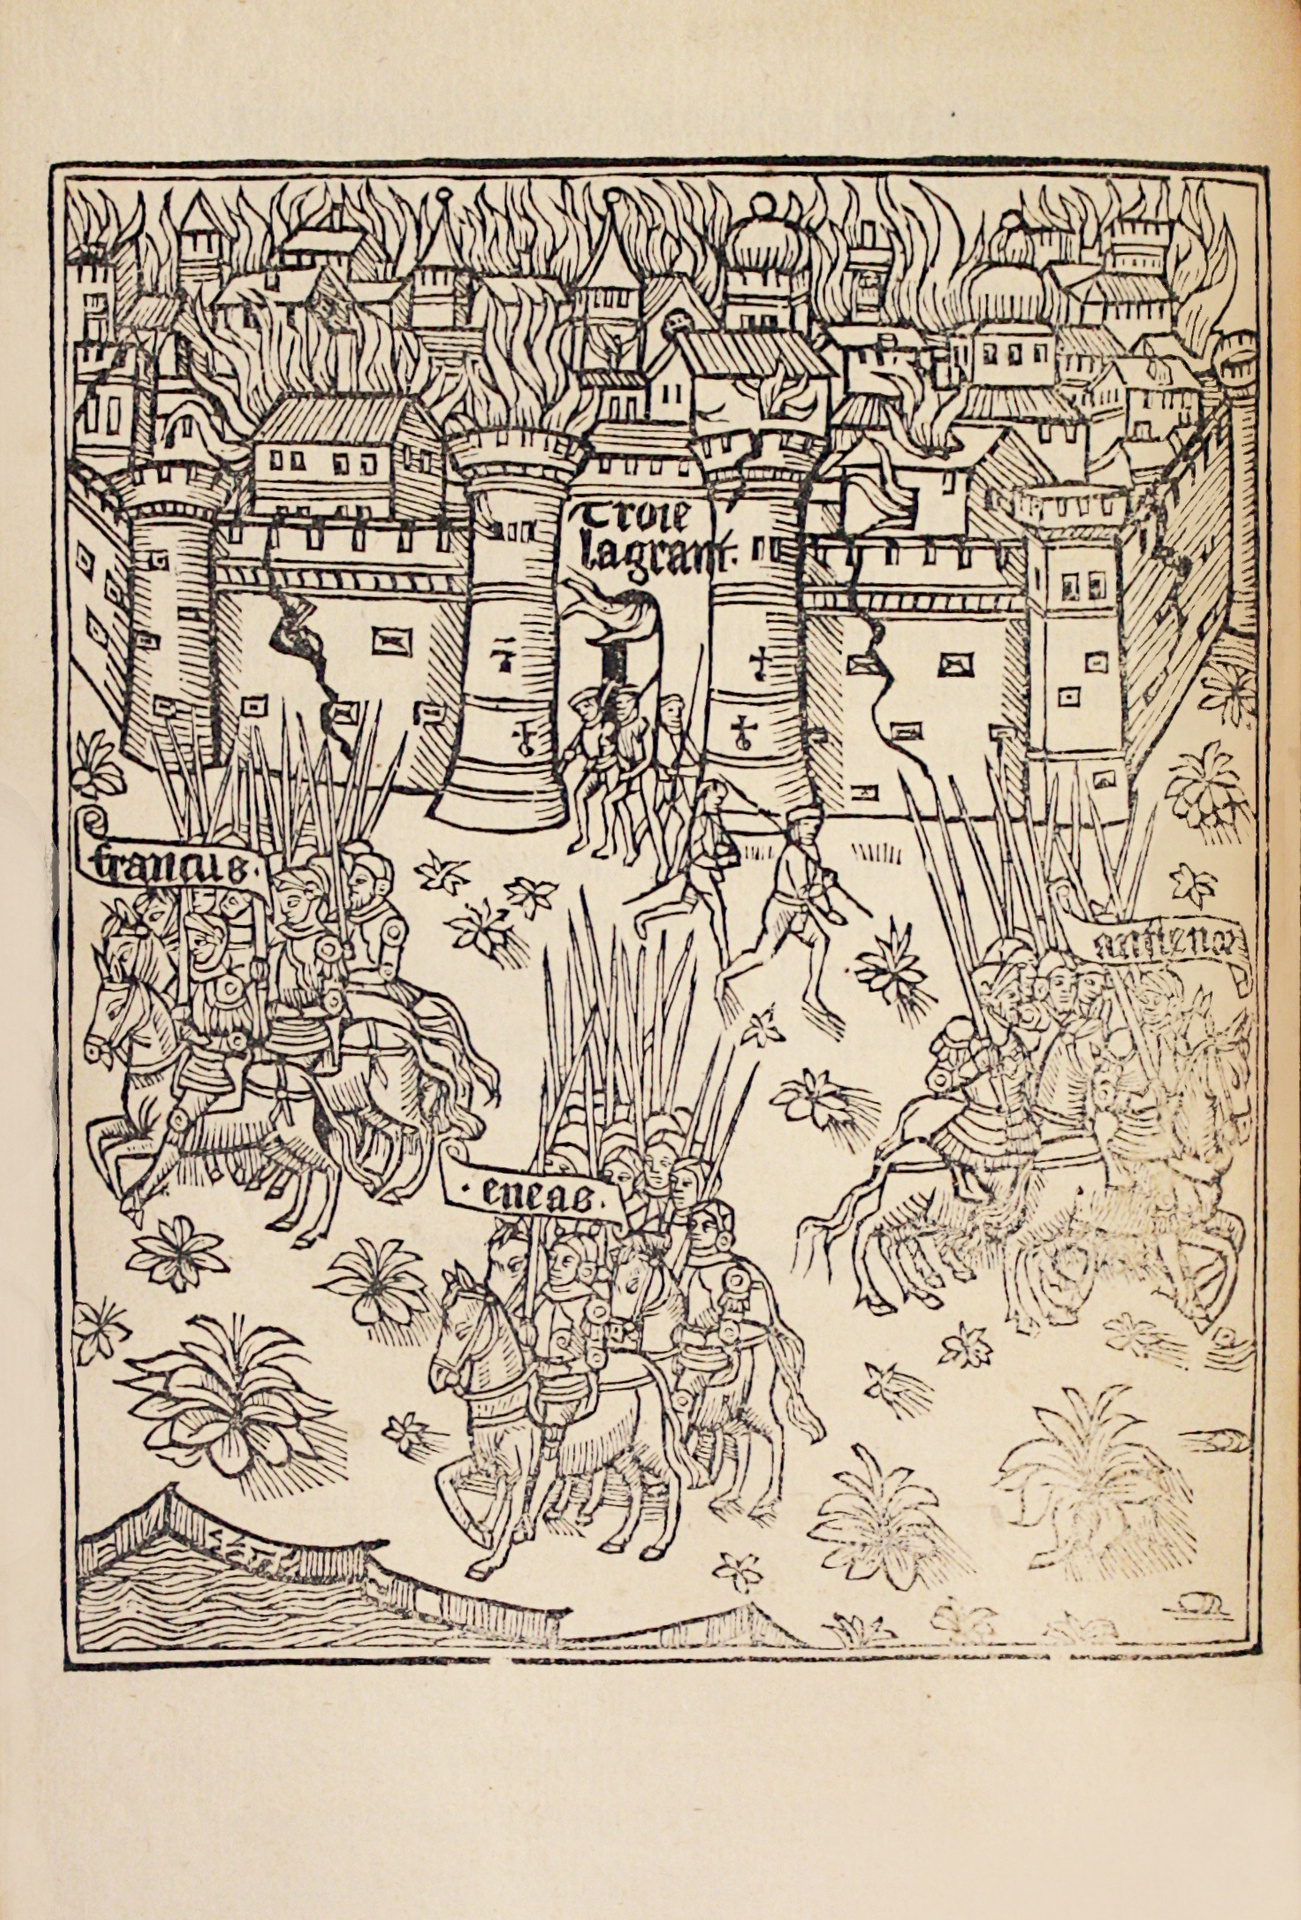 Troie
lagrant.
francus.
· eneas ·